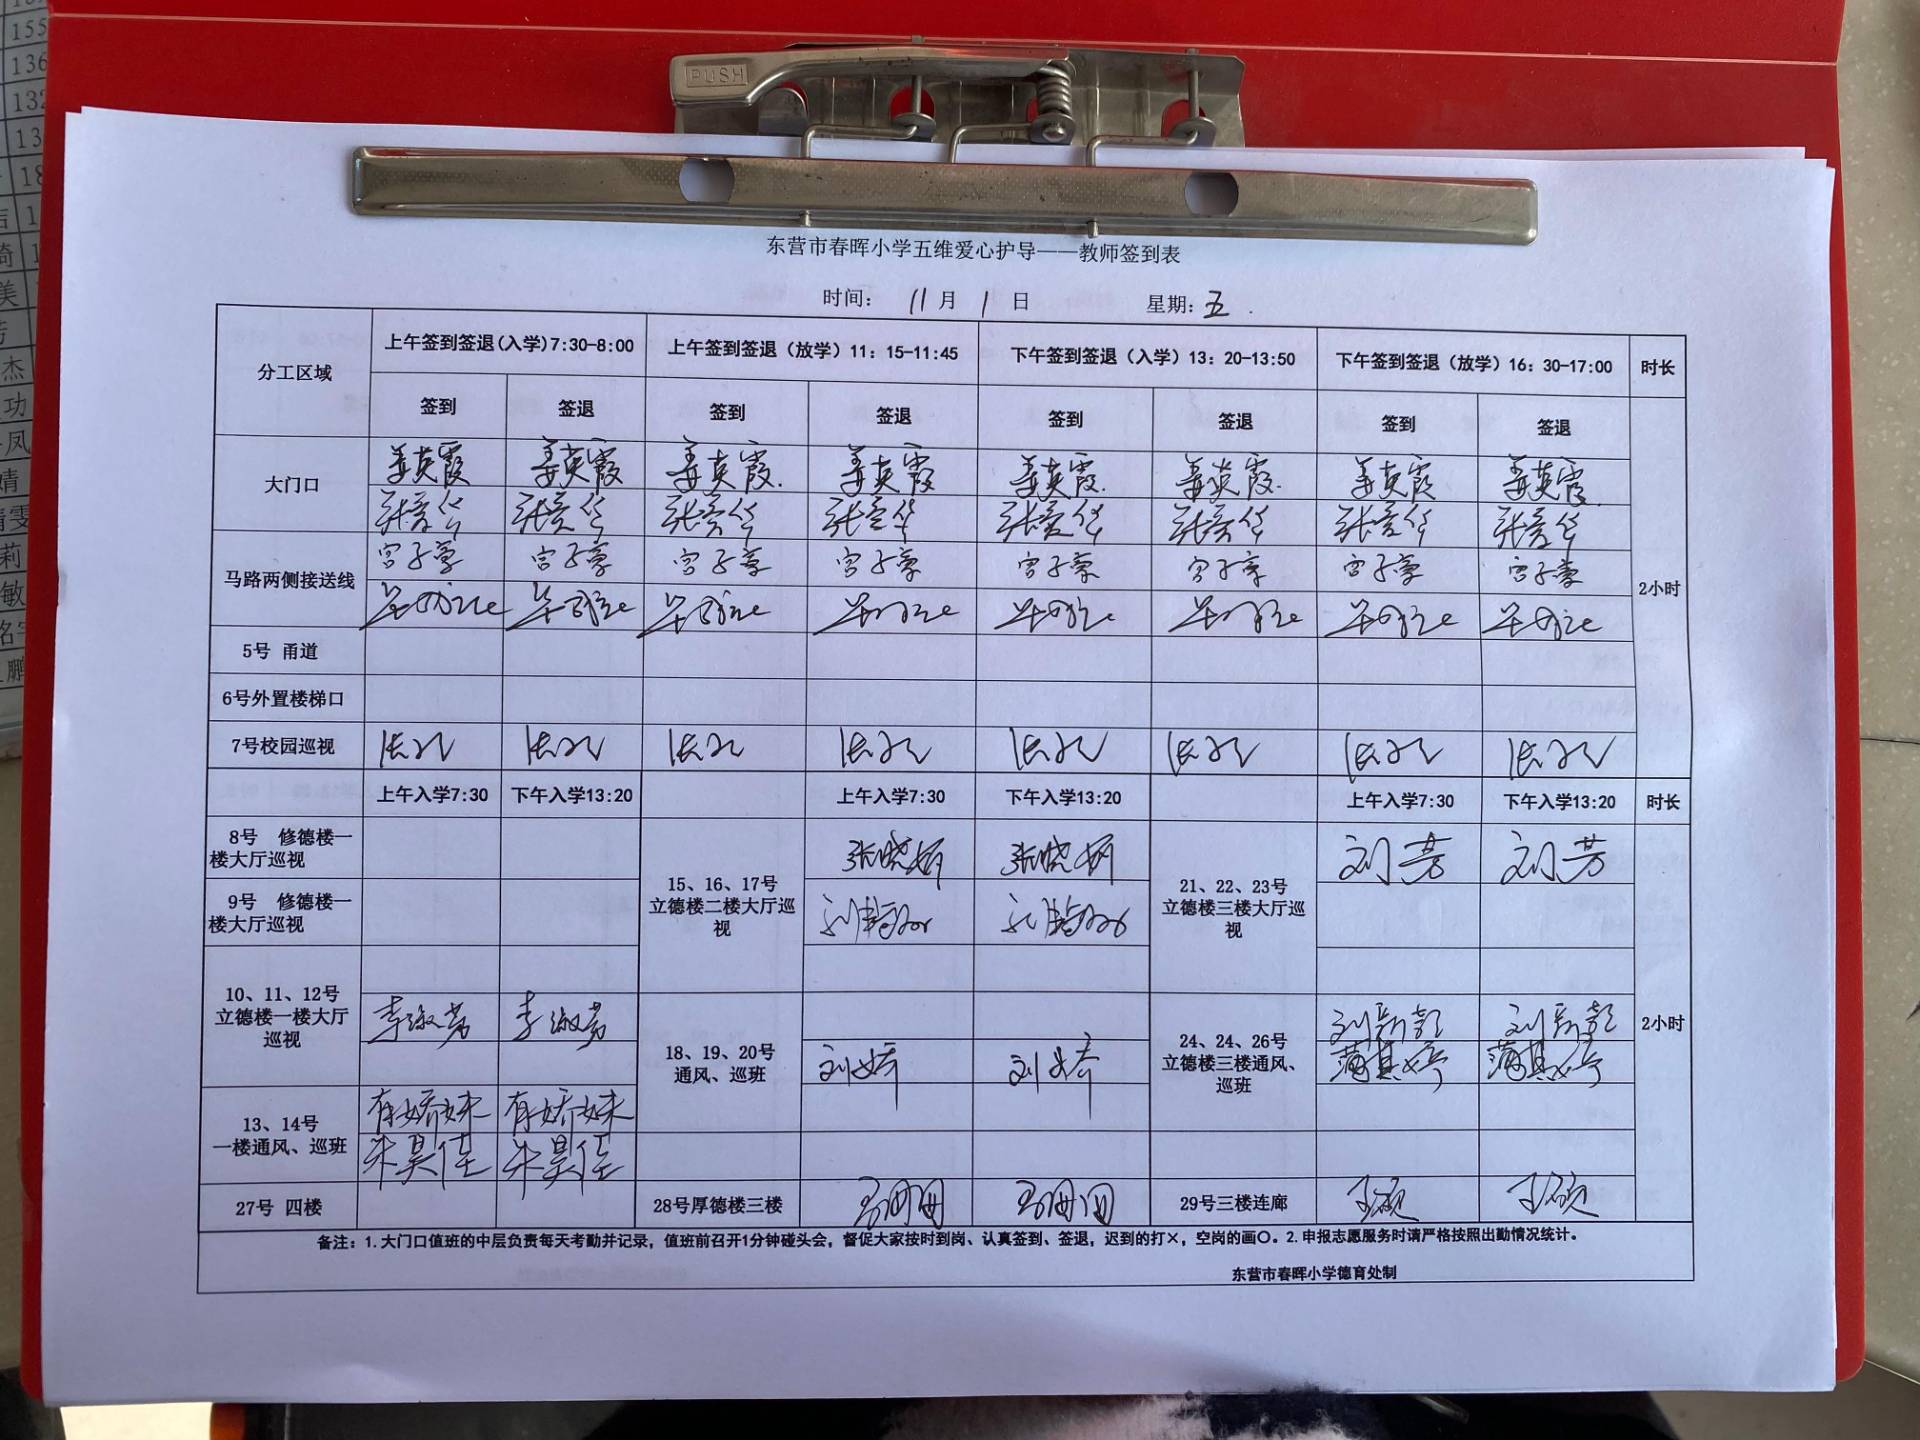 PUSH
东营市春晖小学五维爱心护导——教师签到表
时间： 11 月 1 日 星期：五
分工区域 上午签到签退(入学)7:30-8:00 上午签到签退（放学）11：15-11:45 下午签到签退（入学）13：20-13:50 下午签到签退（放学）16：30-17:00 时长
签到 签退 签到 签退 签到 签退 签到 签退
大门口 姜英霞 姜英霞 姜英霞. 姜英霞 姜英霞. 姜英霞. 姜英霞 姜英霞.
张彦华 张彦华 张彦华 张彦华 张彦华 张彦华 张彦华 张彦华
马路两侧接送线 宫子豪 宫子豪 宫子豪 宫子豪 宫子豪 宫子豪 宫子豪 宫子豪
2小时
5号 甬道
6号外置楼梯口
7号校园巡视
上午入学7:30 下午入学13:20 上午入学7:30 下午入学13:20 上午入学7:30 下午入学13:20 时长
8号 修德楼一
楼大厅巡视
张晓娟 张晓娟 刘芳 刘芳
15、16、17号
立德楼二楼大厅巡
视
21、22、23号
立德楼三楼大厅巡
视
9号 修德楼一
楼大厅巡视
10、11、12号
立德楼一楼大厅
巡视
李淑芳 李淑芳
18、19、20号
通风、巡班
刘娇 刘娇
24、24、26号
立德楼三楼通风、
巡班
刘新彭 刘新彭
蒲其婷 蒲其婷
2小时
13、14号
一楼通风、巡班
有娇妹 有娇妹
朱昊佳 朱昊佳
27号 四楼 28号厚德楼三楼 29号三楼连廊 王硕 王硕
备注：1.大门口值班的中层负责每天考勤并记录，值班前召开1分钟碰头会，督促大家按时到岗、认真签到、签退，迟到的打×，空岗的画〇。2.申报志愿服务时请严格按照出勤情况统计。
东营市春晖小学德育处制